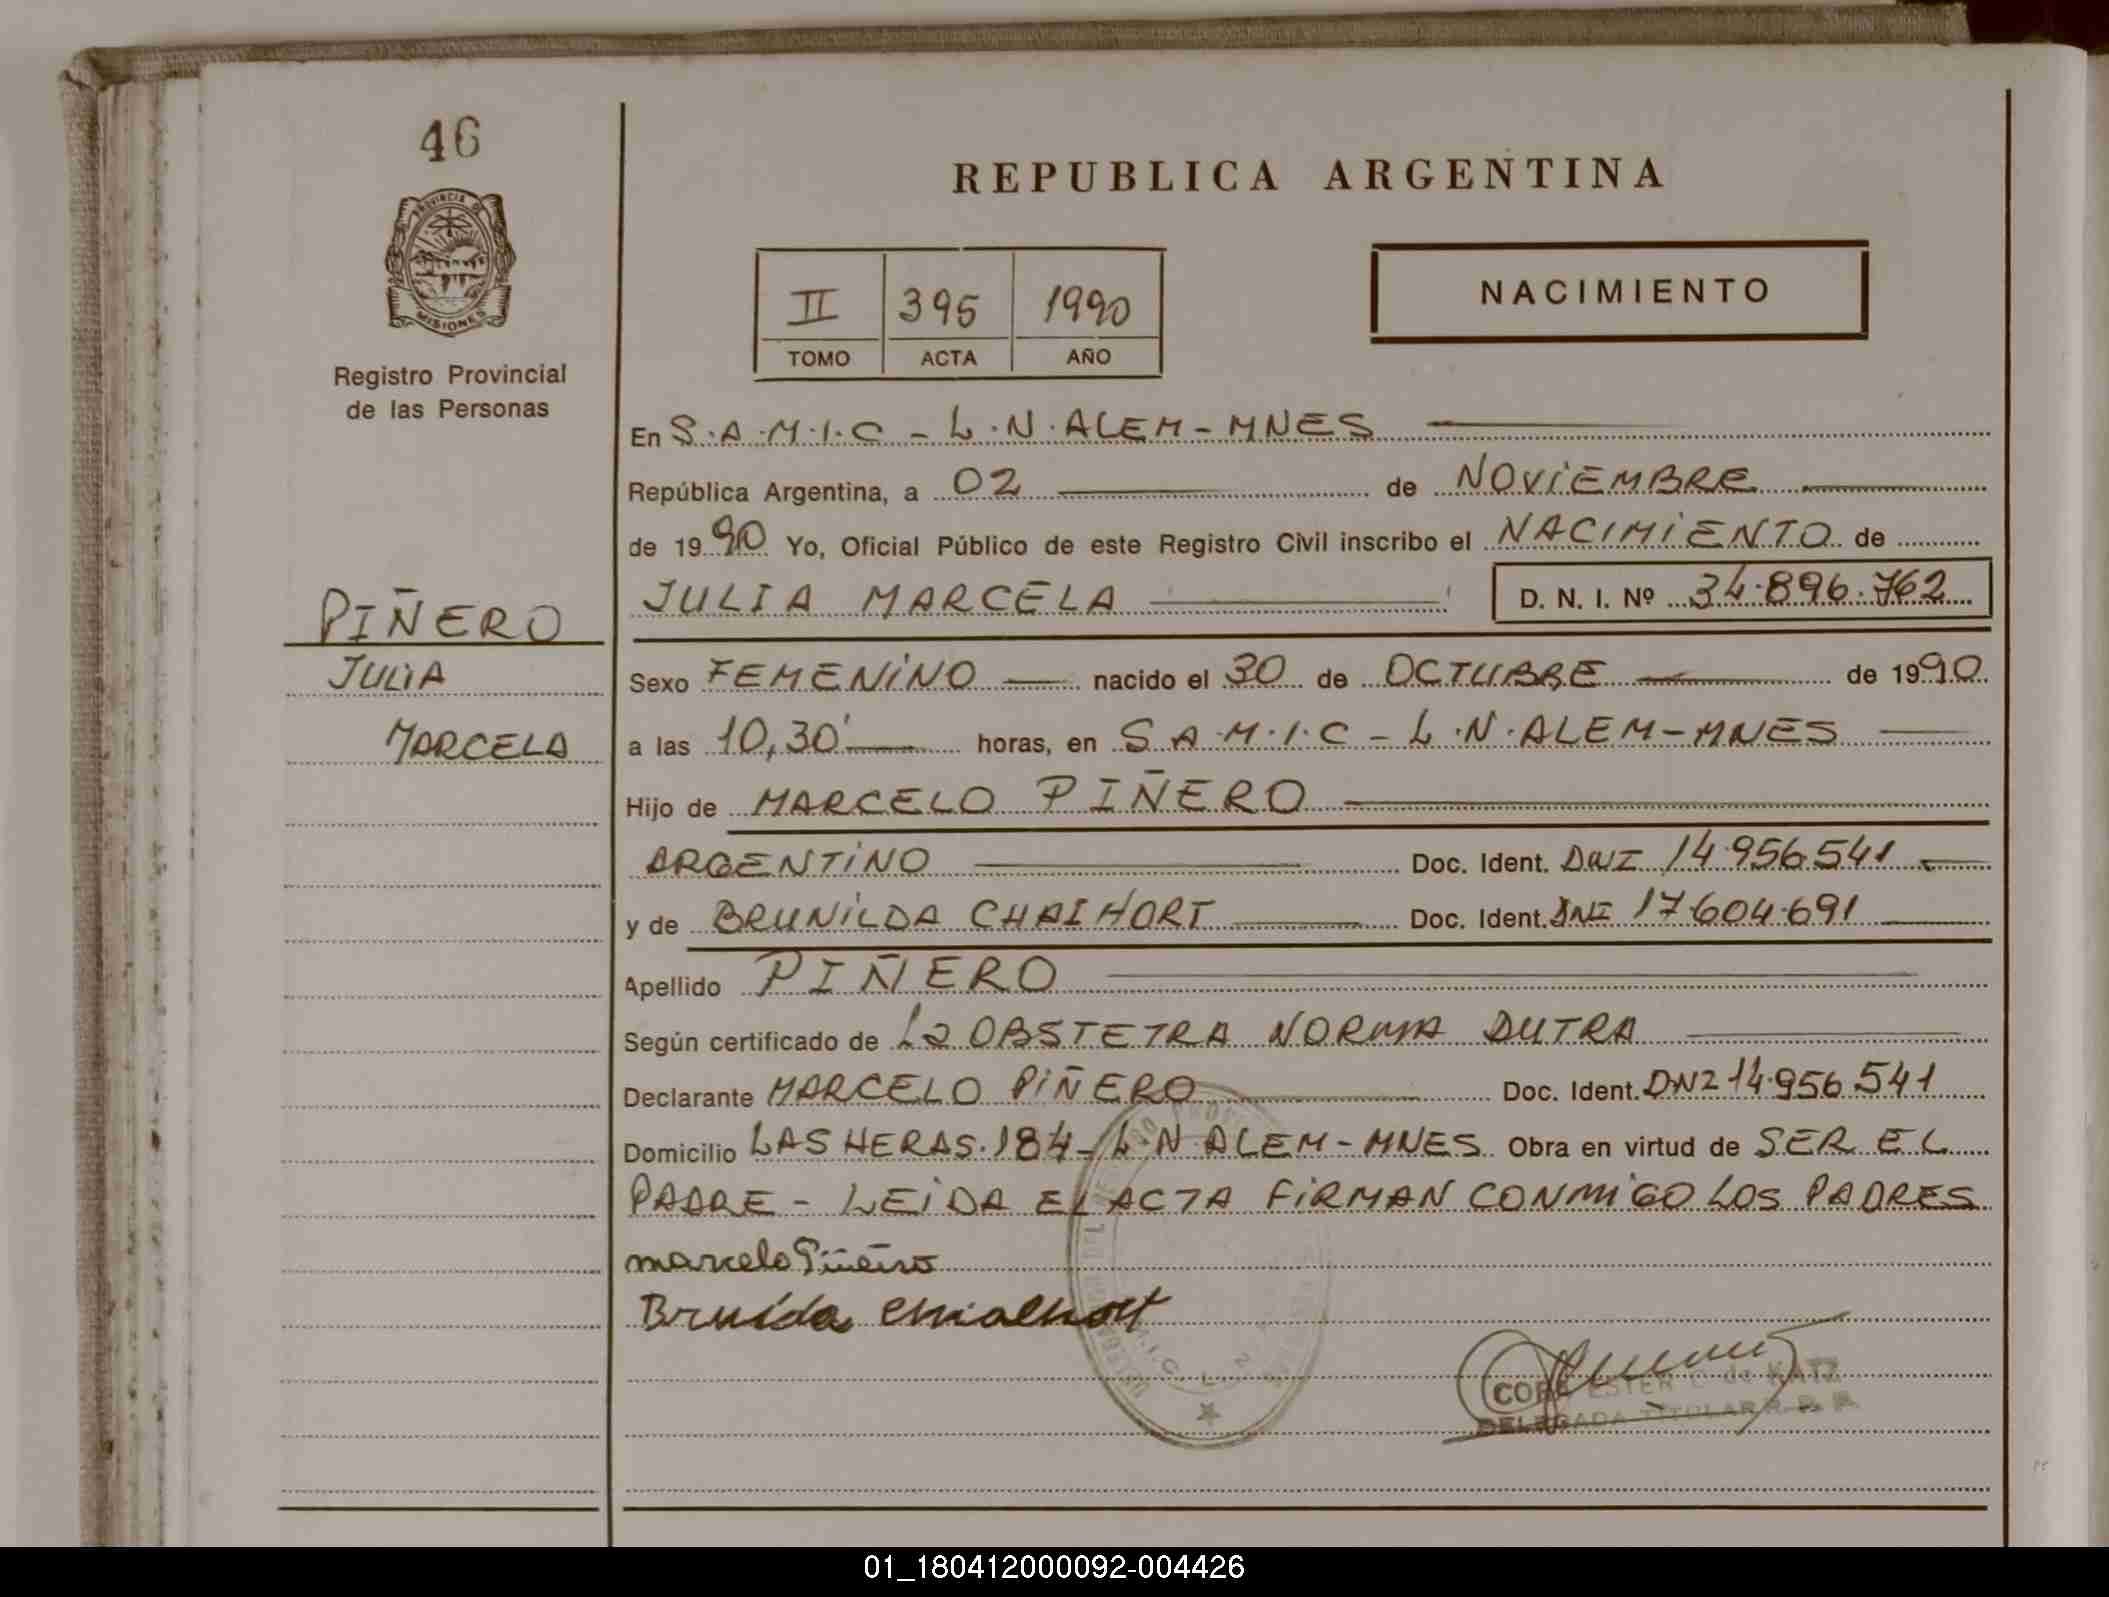 46
PROVINCIA DE
MISIONES
Registro Provincial
de las Personas
REPUBLICA ARGENTINA
NACIMIENTO
II 395 1990
TOMO ACTA AÑO
En S.A.M.I.C - L.N.ALEM-MNES
República Argentina, a 02 de NOVIEMBRE
de 1990 Yo, Oficial Público de este Registro Civil inscribo el NACIMIENTO de
JULIA MARCELA D. N. I. Nº 34.896.762
PIÑERO
JULIA
MARCELA
Sexo FEMENINO nacido el 30 de OCTUBRE de 1990
a las 10,30' horas, en S.A.M.I.C - L.N.ALEM-MNES
Hijo de MARCELO PIÑERO
ARGENTINO Doc. Ident. DNI 14.956.541
y de BRUNILDA Doc. Ident. DNI 17.604.691
Apellido PIÑERO
Según certificado de La OBSTETRA NORMA DUTRA
Declarante MARCELO PIÑERO Doc. Ident. DNI 14.956.541
Domicilio LAS HERAS.184-L.N ALEM-MNES Obra en virtud de SER EL
PADRE - LEIDA EL ACTA FIRMAN CONMIGO LOS PADRES
marcelo Piñeiro
ESTER C de KATZ
DELEGADA TITULAR R. P. P.
01_180412000092-004426